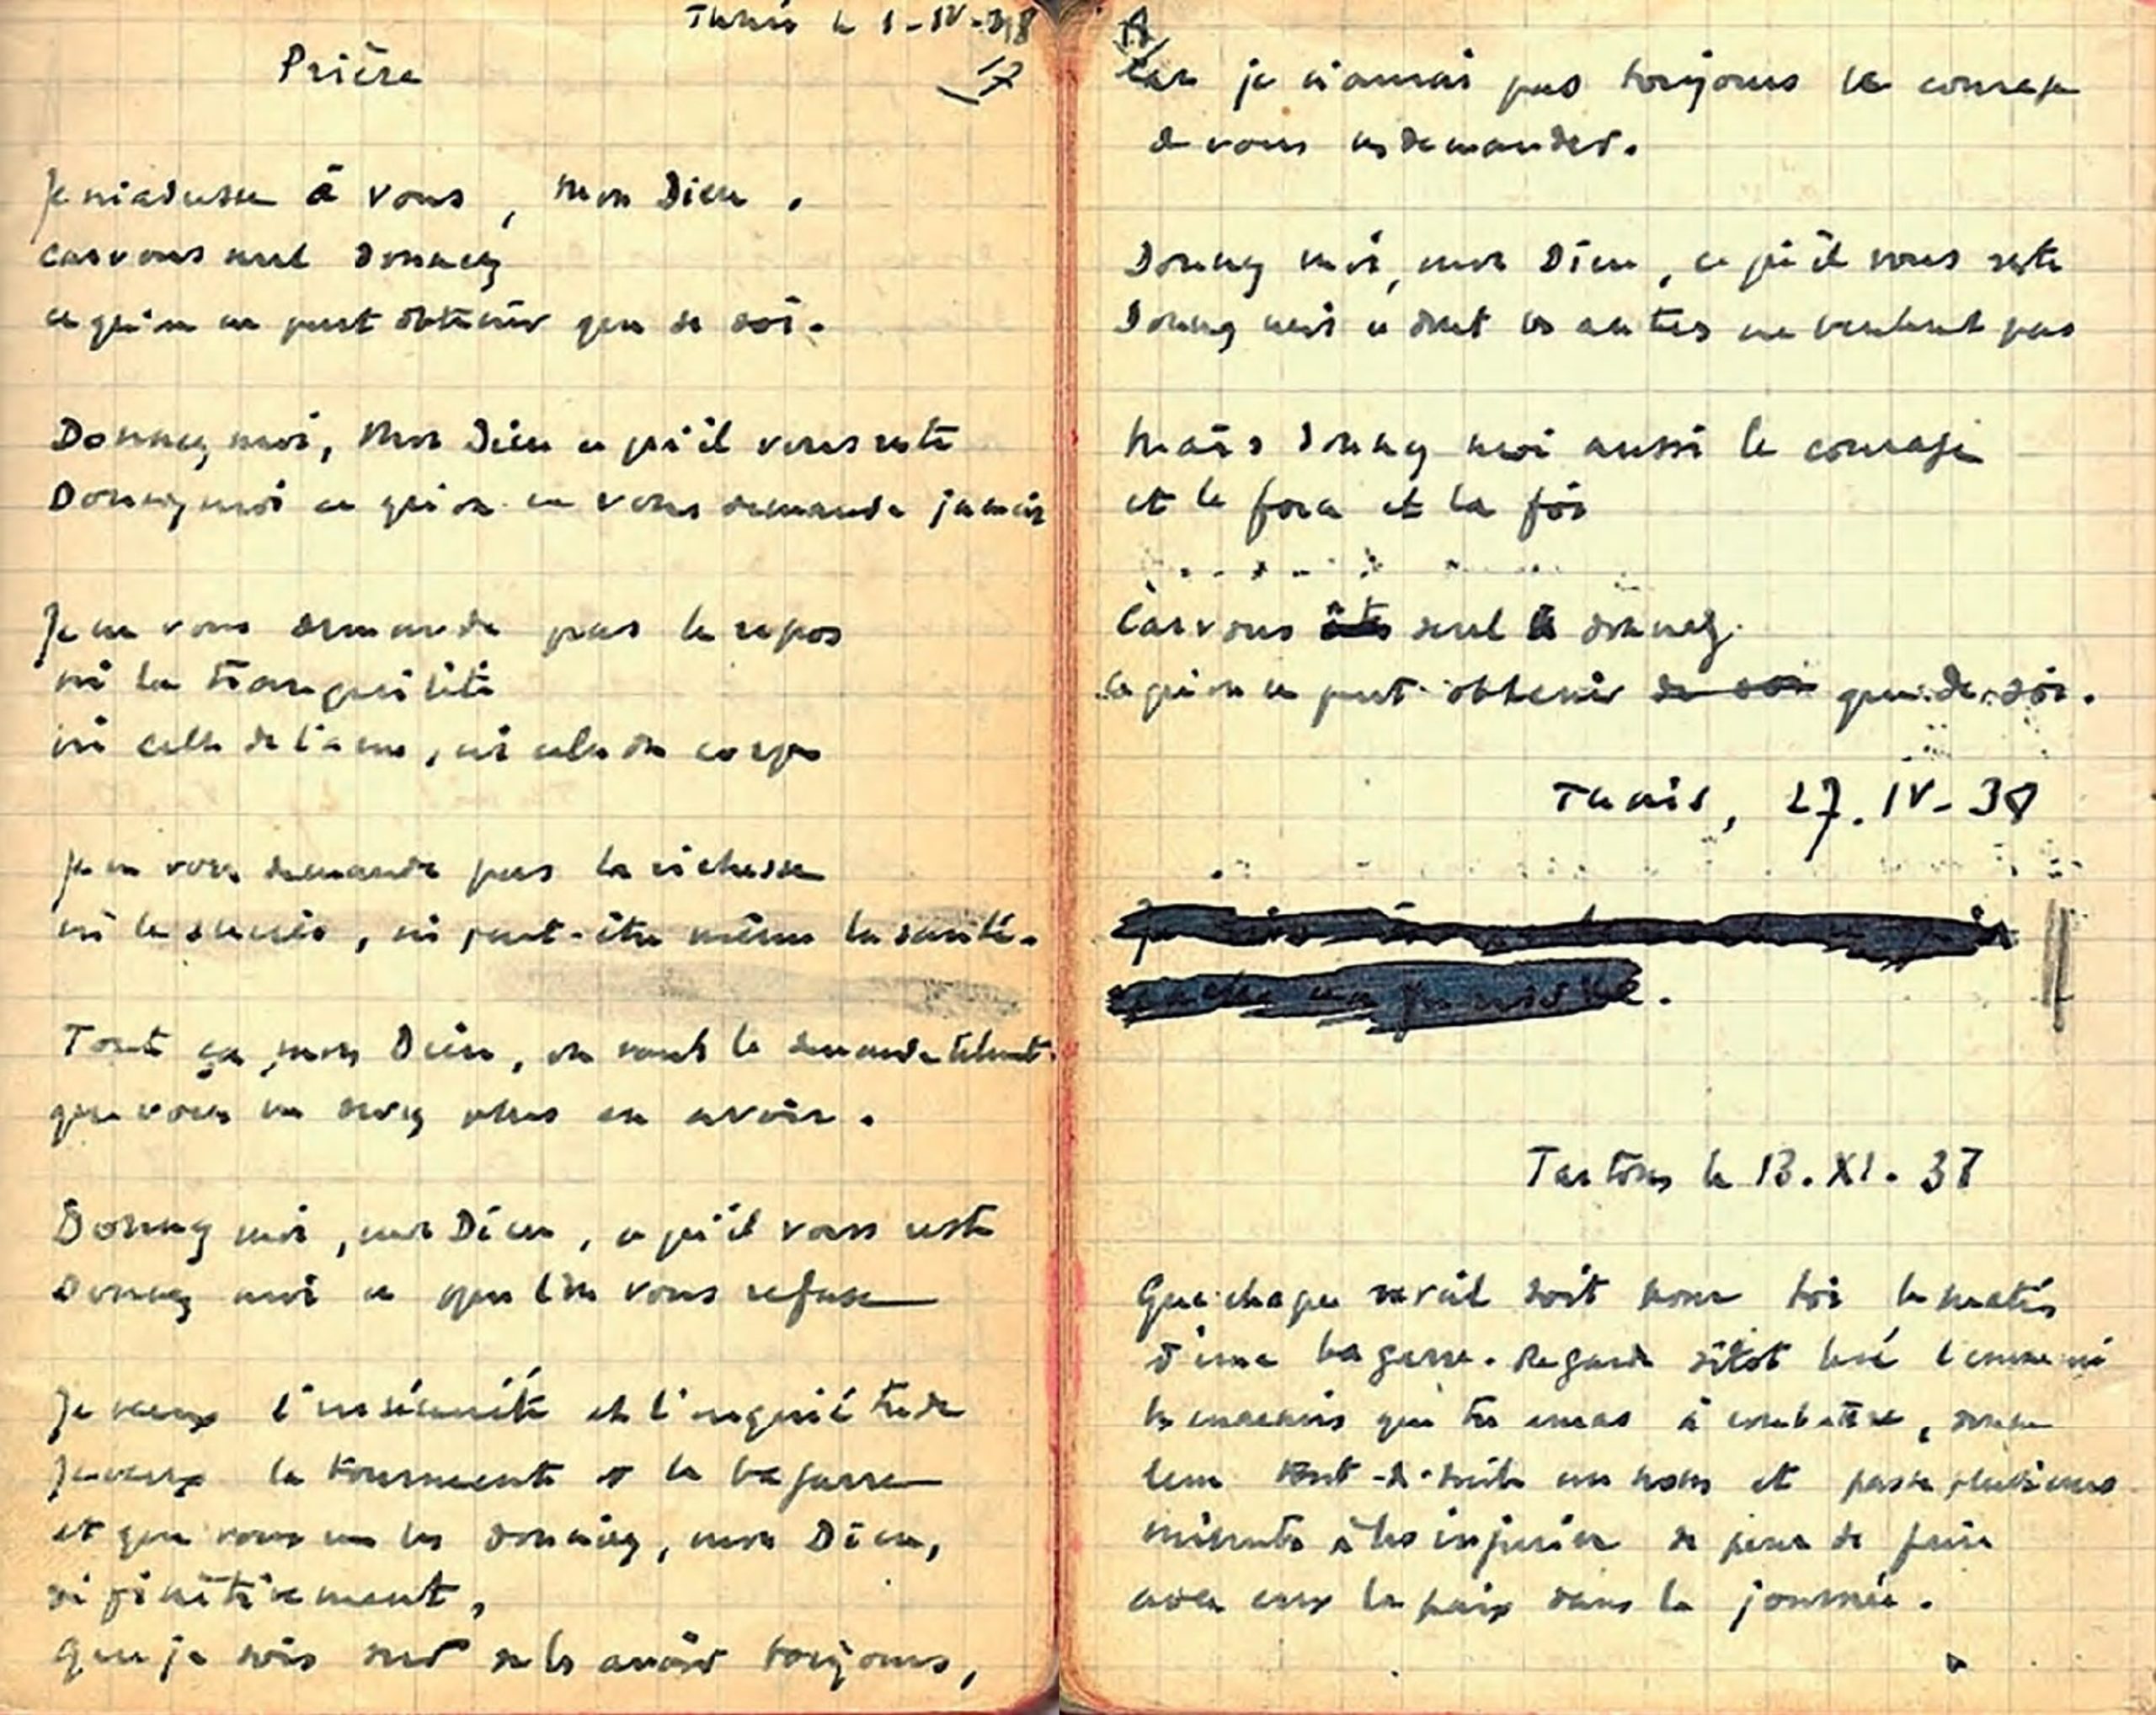 Tunis le 1-IV-38
17
Prière
Je m'adresse à vous, mon Dieu.
car vous seul donnez
ce qu'on ne peut obtenir que de soi.
Donnez moi, Mon Dieu ce qu'il vous reste
Donnez moi ce qu'on ne vous demande jamais
Je ne vous demande pas le repos
ni la tranquilité
ni celle de l'ame, ni celle du corps
Je ne vous demande pas la richesse
ni le succès, ni peut-être même la santé.
Tout ça, mon Dieu, on vous le demande telement
que vous ne devez plus en avoir.
Donnez moi, mon Dieu, ce qu'il vous reste
Donnez moi ce que l'on vous refuse
Je veux l'insécurité et l'inquiétude
Je veux la tourmente et la bagarre
et que vous me les donniez, mon Dieu,
définitivement,
Que je sois sur de les avoir toujours,
Car je n'aurai pas toujours le courage
de vous les demander.
Donnez moi, mon Dieu, ce qu'il vous reste
Donnez moi ce dont les autres ne veulent pas
Mais donnez moi aussi le courage
et la force et la foi
Car vous êtes seul à donnez
ce qu'on ne peut obtenir de soi que de soi.
Tunis, 27.IV-38
le 13.XI.37
Que chaque réveil soit pour toi le matin
d'une bagarre. Regarde sitôt levé l'ennemi
les ennemis que tu auras à combattre, donne
leur tout-de-suite un nom et passe plusieurs
minutes à les injurier de peur de faire
avec eux la paix dans la journée.